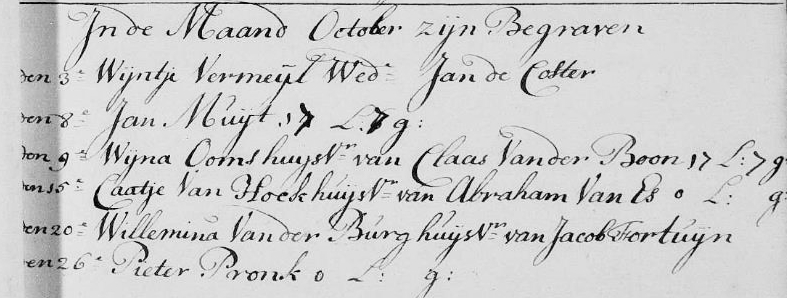 In de Maand October zijn Begraven
den 3e Wijntje Vermeijl Wede Jan de Coster
den 8e Jan Muijt 17 L: 7 g:
den 9e Wijna Ooms huijsvrn van Claas Vander Boon 17 L: 7 g
den 15e Caatje Van Hoek huijsvrn van Abraham Van Es 0 L: g:
den 20e Willemina Vander Burg huijsvrn van Jacob Fortuijn
den 26e Pieter Pronk 0 L: g: